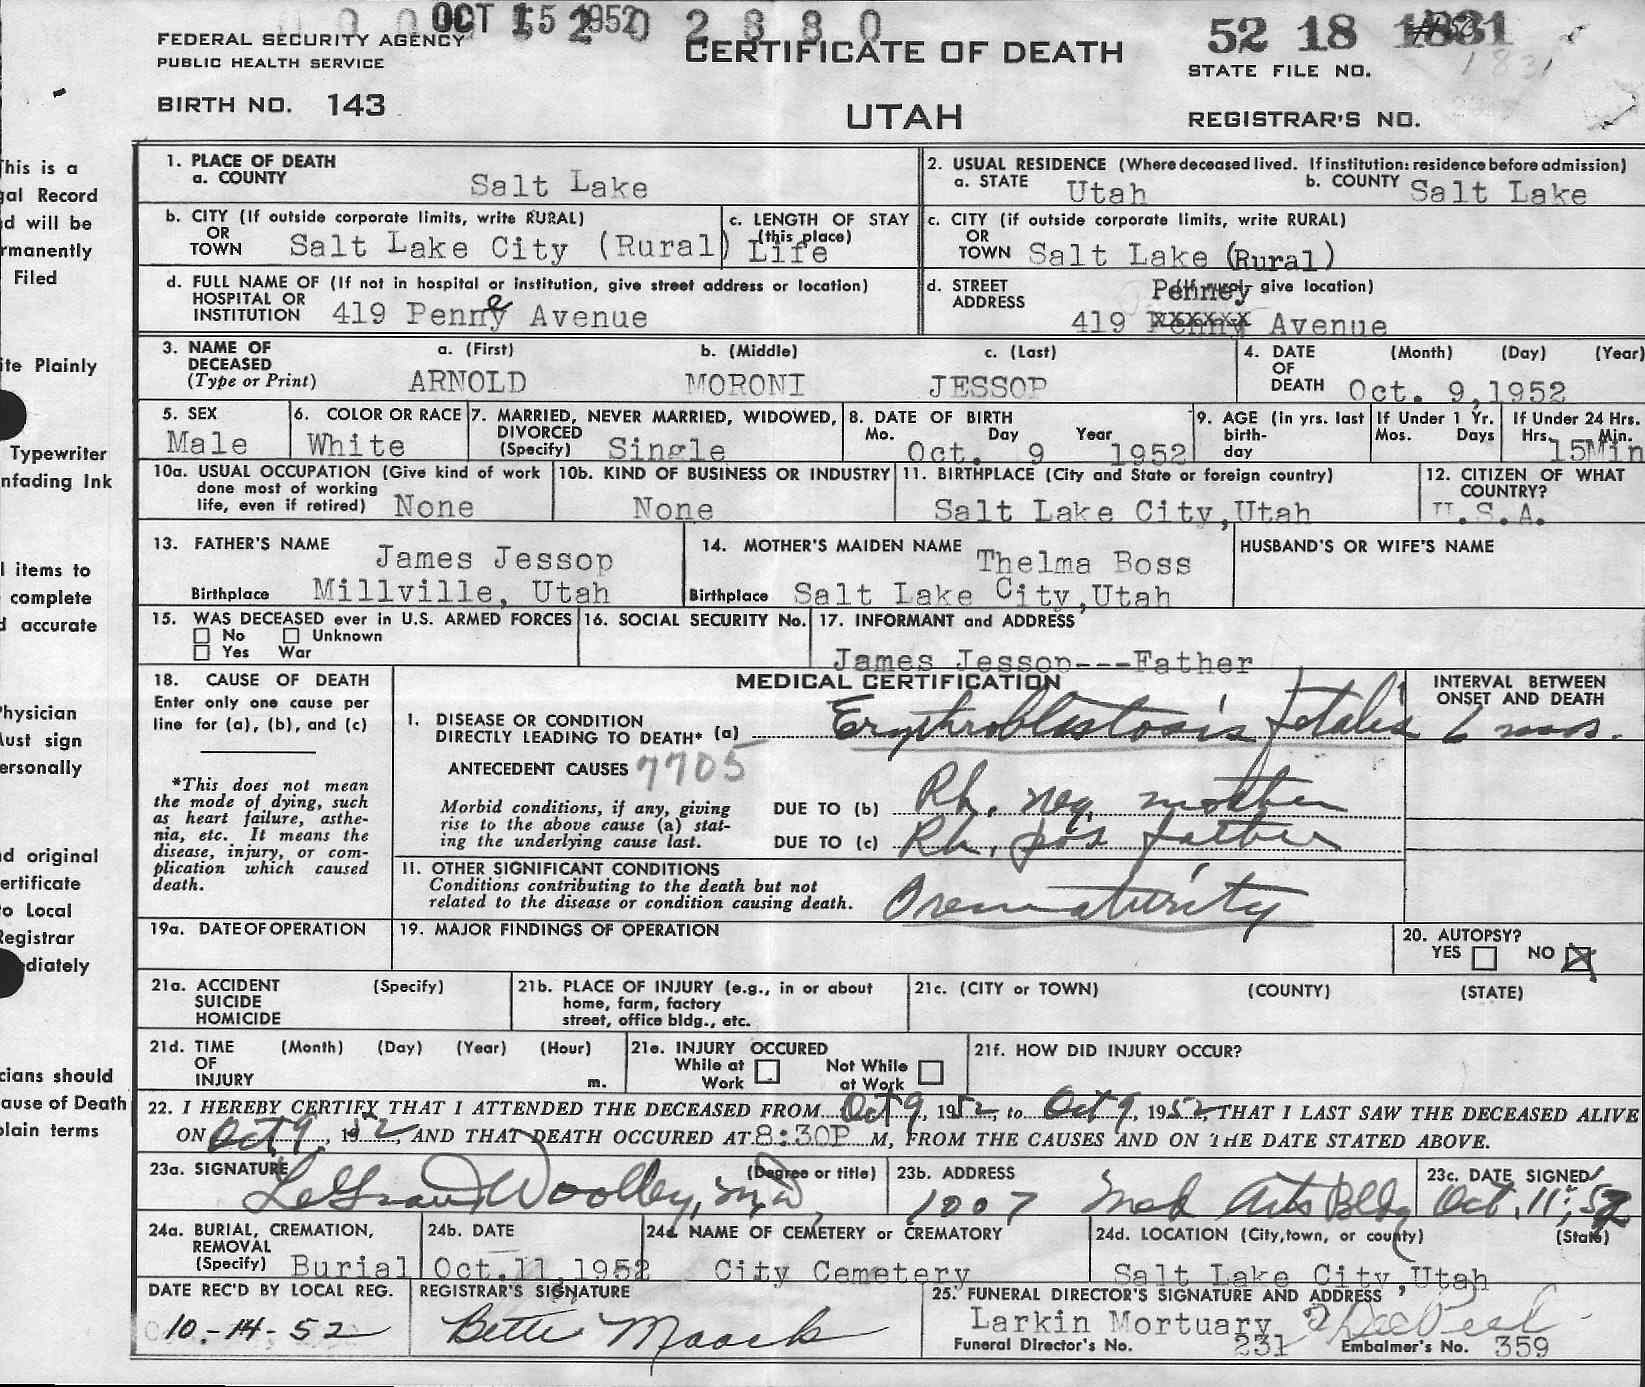 OCT 15 1952 2 0 2 8 8 0
52 18 1831
1831
FEDERAL SECURITY AGENCY
PUBLIC HEALTH SERVICE
CERTIFICATE OF DEATH
STATE FILE NO.
BIRTH NO. 143
UTAH
REGISTRAR'S NO.
This is a
gal Record
d will be
rmanently
Filed
ite Plainly
Typewriter
nfading Ink
l items to
complete
d accurate
Physician
Must sign
ersonally
nd original
ertificate
to Local
Registrar
diately
cians should
ause of Death
plain terms
1. PLACE OF DEATH
a. COUNTY Salt Lake
2. USUAL RESIDENCE (Where deceased lived. If institution: residence before admission)
a. STATE Utah b. COUNTY Salt Lake
b. CITY (If outside corporate limits, write RURAL)
OR
TOWN Salt Lake City (Rural)
c. LENGTH OF STAY
(this place)
Life
c. CITY (if outside corporate limits, write RURAL)
OR
TOWN Salt Lake (Rural)
d. FULL NAME OF (If not in hospital or institution, give street address or location)
HOSPITAL OR
INSTITUTION 419 Penney Avenue
d. STREET (If rural, give location)
ADDRESS Penney
419 Avenue
3. NAME OF
DECEASED
(Type or Print)
a. (First) b. (Middle) c. (Last)
ARNOLD MORONI JESSOP
4. DATE (Month) (Day) (Year)
OF
DEATH Oct. 9,1952
5. SEX
Male
6. COLOR OR RACE
White
7. MARRIED, NEVER MARRIED, WIDOWED,
DIVORCED
(Specify) Single
8. DATE OF BIRTH
Mo. Day Year
Oct. 9 1952
9. AGE (in yrs. last
birth-
day
If Under 1 Yr.
Mos. Days
If Under 24 Hrs.
Hrs. Min.
15Min
10a. USUAL OCCUPATION (Give kind of work
done most of working
life, even if retired) None
10b. KIND OF BUSINESS OR INDUSTRY
None
11. BIRTHPLACE (City and State or foreign country)
Salt Lake City,Utah
12. CITIZEN OF WHAT
COUNTRY?
U.S.A.
13. FATHER'S NAME James Jessop
Birthplace Millville, Utah
14. MOTHER'S MAIDEN NAME Thelma Boss
Birthplace Salt Lake City,Utah
HUSBAND'S OR WIFE'S NAME
15. WAS DECEASED ever in U.S. ARMED FORCES
No Unknown
Yes War
16. SOCIAL SECURITY No.
17. INFORMANT and ADDRESS
James Jessop---Father
18. CAUSE OF DEATH
Enter only one cause per
line for (a), (b), and (c)
*This does not mean
the mode of dying, such
as heart failure, asthe-
nia, etc. It means the
disease, injury, or com-
plication which caused
death.
MEDICAL CERTIFICATION
INTERVAL BETWEEN
ONSET AND DEATH
1. DISEASE OR CONDITION
DIRECTLY LEADING TO DEATH* (a) Erythroblastosis fetalis 6 mos.
ANTECEDENT CAUSES 7705
Morbid conditions, if any, giving
rise to the above cause (a) stat-
ing the underlying cause last.
DUE TO (b) Rh. neg. mother
DUE TO (c) Rh. pos father
11. OTHER SIGNIFICANT CONDITIONS
Conditions contributing to the death but not
related to the disease or condition causing death.
Prematurity
19a. DATE OF OPERATION
19. MAJOR FINDINGS OF OPERATION
20. AUTOPSY?
YES NO X
21a. ACCIDENT (Specify)
SUICIDE
HOMICIDE
21b. PLACE OF INJURY (e.g., in or about
home, farm, factory
street, office bldg., etc.
21c. (CITY or TOWN) (COUNTY) (STATE)
21d. TIME (Month) (Day) (Year) (Hour)
OF
INJURY m.
21e. INJURY OCCURED
While at Work Not While at Work
21f. HOW DID INJURY OCCUR?
22. I HEREBY CERTIFY THAT I ATTENDED THE DECEASED FROM Oct 9, 1952, to Oct 9, 1952, THAT I LAST SAW THE DECEASED ALIVE
ON Oct 9, 1952, AND THAT DEATH OCCURED AT 8:30P M, FROM THE CAUSES AND ON THE DATE STATED ABOVE.
23a. SIGNATURE (Degree or title)
LeGrand Woolley, M.D.
23b. ADDRESS
1007 Med Arts Bldg
23c. DATE SIGNED
Oct. 11, 52
24a. BURIAL, CREMATION,
REMOVAL
(Specify) Burial
24b. DATE
Oct.11,1952
24c NAME OF CEMETERY or CREMATORY
City Cemetery
24d. LOCATION (City,town, or county) (State)
Salt Lake City,Utah
DATE REC'D BY LOCAL REG.
10-14-52
REGISTRAR'S SIGNATURE
Bette Maack
25. FUNERAL DIRECTOR'S SIGNATURE AND ADDRESS
Larkin Mortuary
Funeral Director's No. 231 Embalmer's No. 359